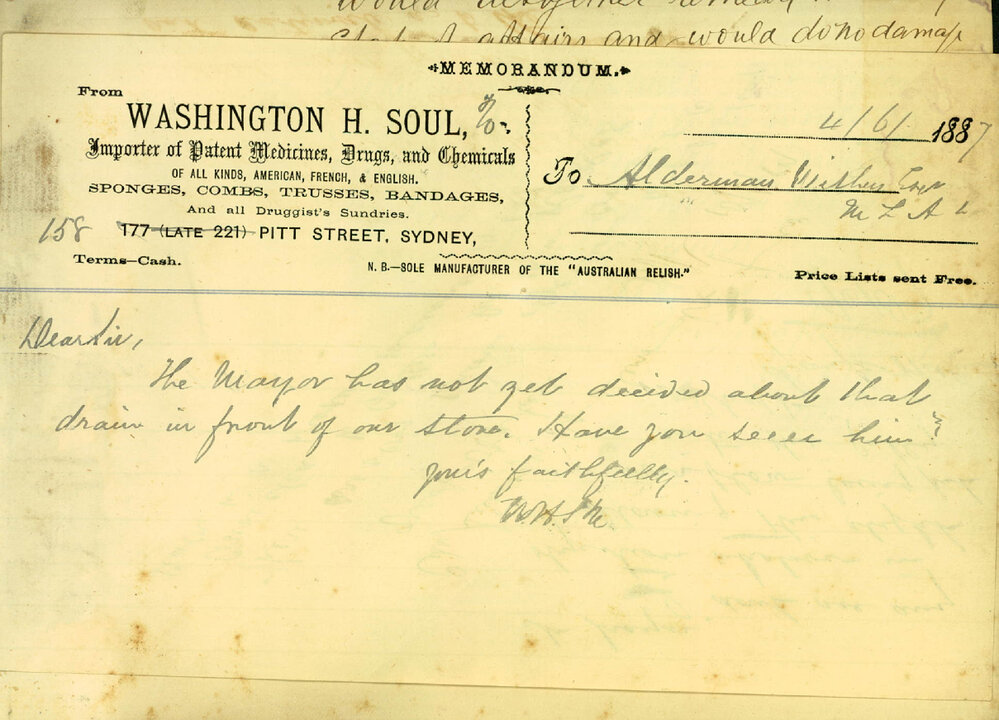 would altogether remedy
state of affairs and would do no damage
MEMORANDUM.
From
WASHINGTON H. SOUL, & Co.
Importer of Patent Medicines, Drugs, and Chemicals
OF ALL KINDS, AMERICAN, FRENCH, & ENGLISH.
SPONGES, COMBS, TRUSSES, BANDAGES,
And all Druggist's Sundries.
158 177 (LATE 221) PITT STREET, SYDNEY,
Terms—Cash.
4/6/1887
To Alderman Withers Esqr
M L A
N. B.—SOLE MANUFACTURER OF THE "AUSTRALIAN RELISH."
Price Lists sent Free.
Dear Sir,
The Mayor has not yet decided about that
drain in front of our store. Have you seen him?
Yours faithfully.